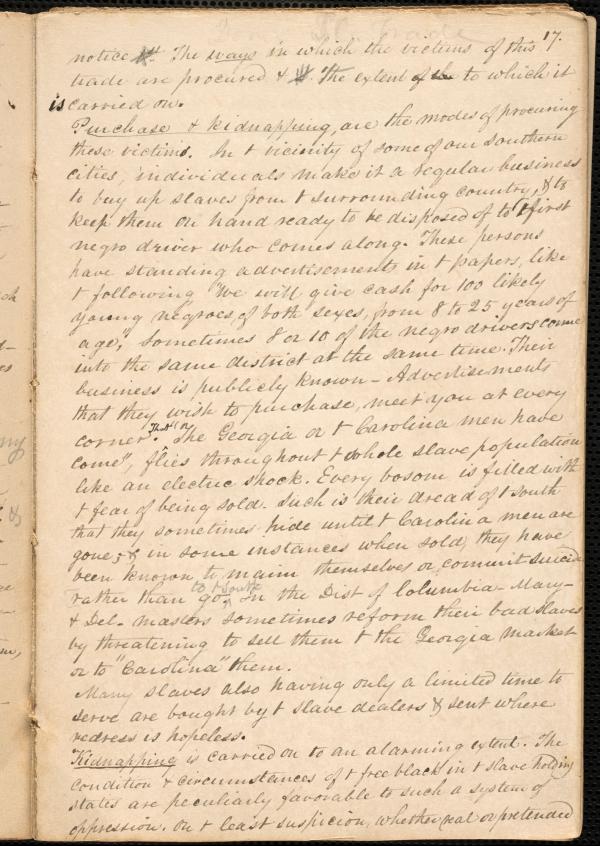 17.
notice. The ways in which the victims of this
trade are procured & The extent to which it
is carried on.
Purchase & kidnapping, are the modes of procuring
these victims. In t vicinity of some of our southern
cities, individuals make it a regular business
to buy up slaves from t surrounding country, & to
keep them on hand ready to be disposed of to t first
negro driver who comes along. These persons
have standing advertisements in t papers, like
t following "We will give cash for 100 likely
young negroes of both sexes, from 8 to 25 years of
age", Sometimes 8 or 10 of the negro drivers come
into the same district at the same time. Their
business is publicly known - Advertisements
that they wish to purchase, meet you at every
corner. "The Georgia or t Carolina men have
come", flies throughout t whole slave population
like an electric shock. Every bosom is filled with
t fear of being sold. Such is their dread of t south
that they sometimes hide until t Carolina men are
gone, & in some instances when sold, they have
been known to maim themselves or commit suicide
rather than go to t south. In the Dist of Columbia - Mary-
& Del - masters sometimes reform their bad slaves
by threatening to sell them t the Georgia market
or to "Carolina" them.
Many slaves also having only a limited time to
serve are bought by t slave dealers & sent where
redress is hopeless.
Kidnapping is carried on to an alarming extent. The
condition & circumstances of t free black in t slave holding
states are peculiarly favorable to such a system of
oppression. On t least suspicion, whether real or pretended